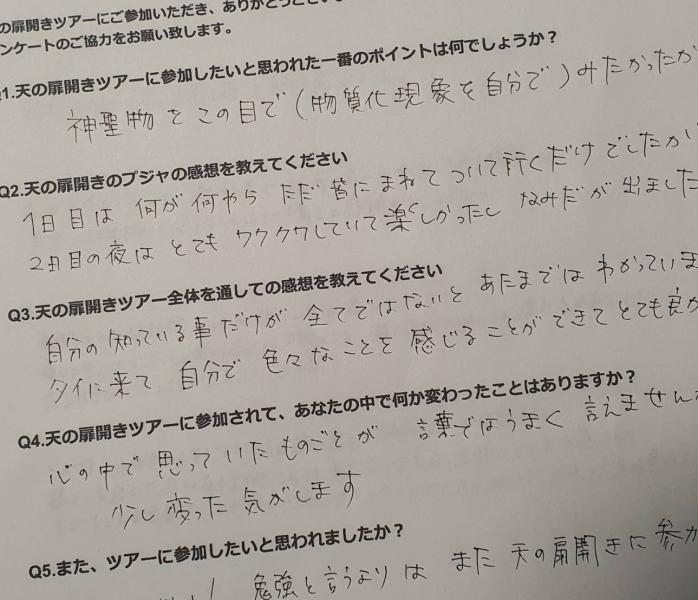 の扉開きツアーにご参加いただき、ありがとうござい
ンケートのご協力をお願い致します。
Q1.天の扉開きツアーに参加したいと思われた一番のポイントは何でしょうか？
神聖物をこの目で(物質化現象を自分で)みたかったか
Q2.天の扉開きのプジャの感想を教えてください
1日目は 何が何やら ただ 皆に まねて ついて行くだけでしたが
2日目の夜は とても ワクワクしていて楽しかったし なみだが 出ました
Q3.天の扉開きツアー全体を通しての感想を教えてください
自分の 知っている事だけが 全てではないと あたまでは わかっていま
タイに来て 自分で 色々なことを 感じることができて とても良か
Q4.天の扉開きツアーに参加されて、あなたの中で何か変わったことはありますか？
心の中で 思っていた ものごとが 言葉ではうまく 言えませんが
少し変った 気がします
Q5.また、ツアーに参加したいと思われましたか？
勉強と言うよりは また 天の扉開きに 参か